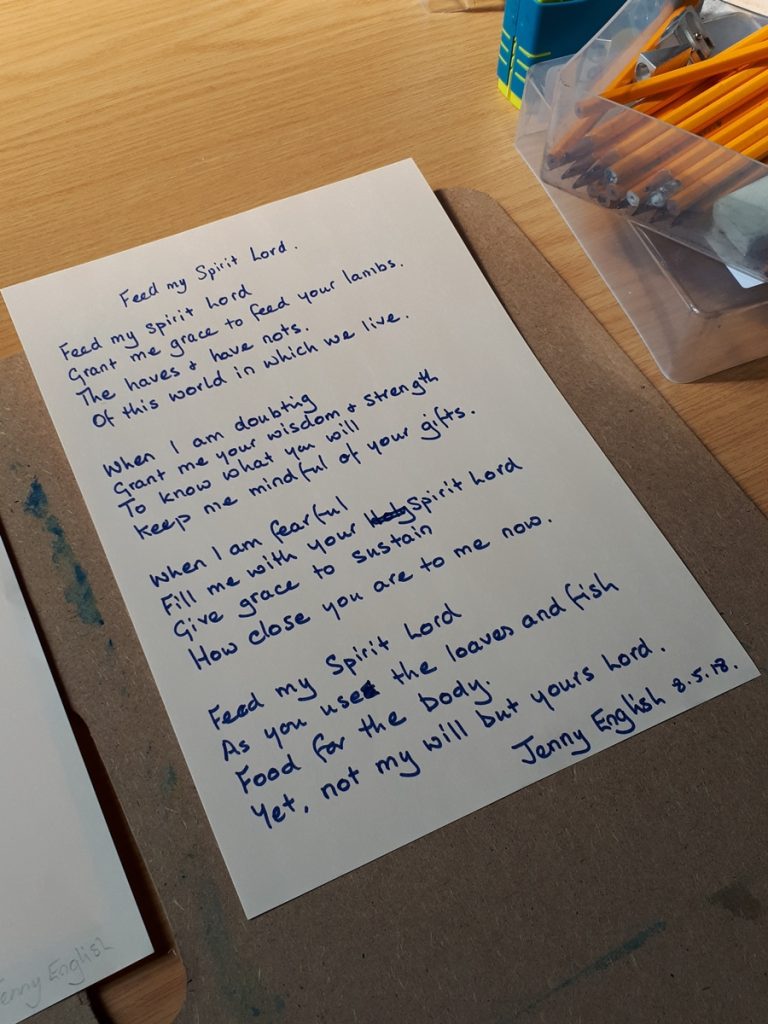 Feed my Spirit Lord.
Feed my Spirit Lord
Grant me grace to feed your lambs.
The haves & have nots.
Of this world in which we live.
When I am doubting
Grant me your wisdom & strength
To know what you will
Keep me mindful of your gifts.
When I am fearful
Fill me with your Spirit Lord
Give grace to sustain
How close you are to me now.
Feed my Spirit Lord
As you use the loaves and fish
Food for the body.
Yet, not my will but yours Lord.
Jenny English 8.5.18.
Jenny English